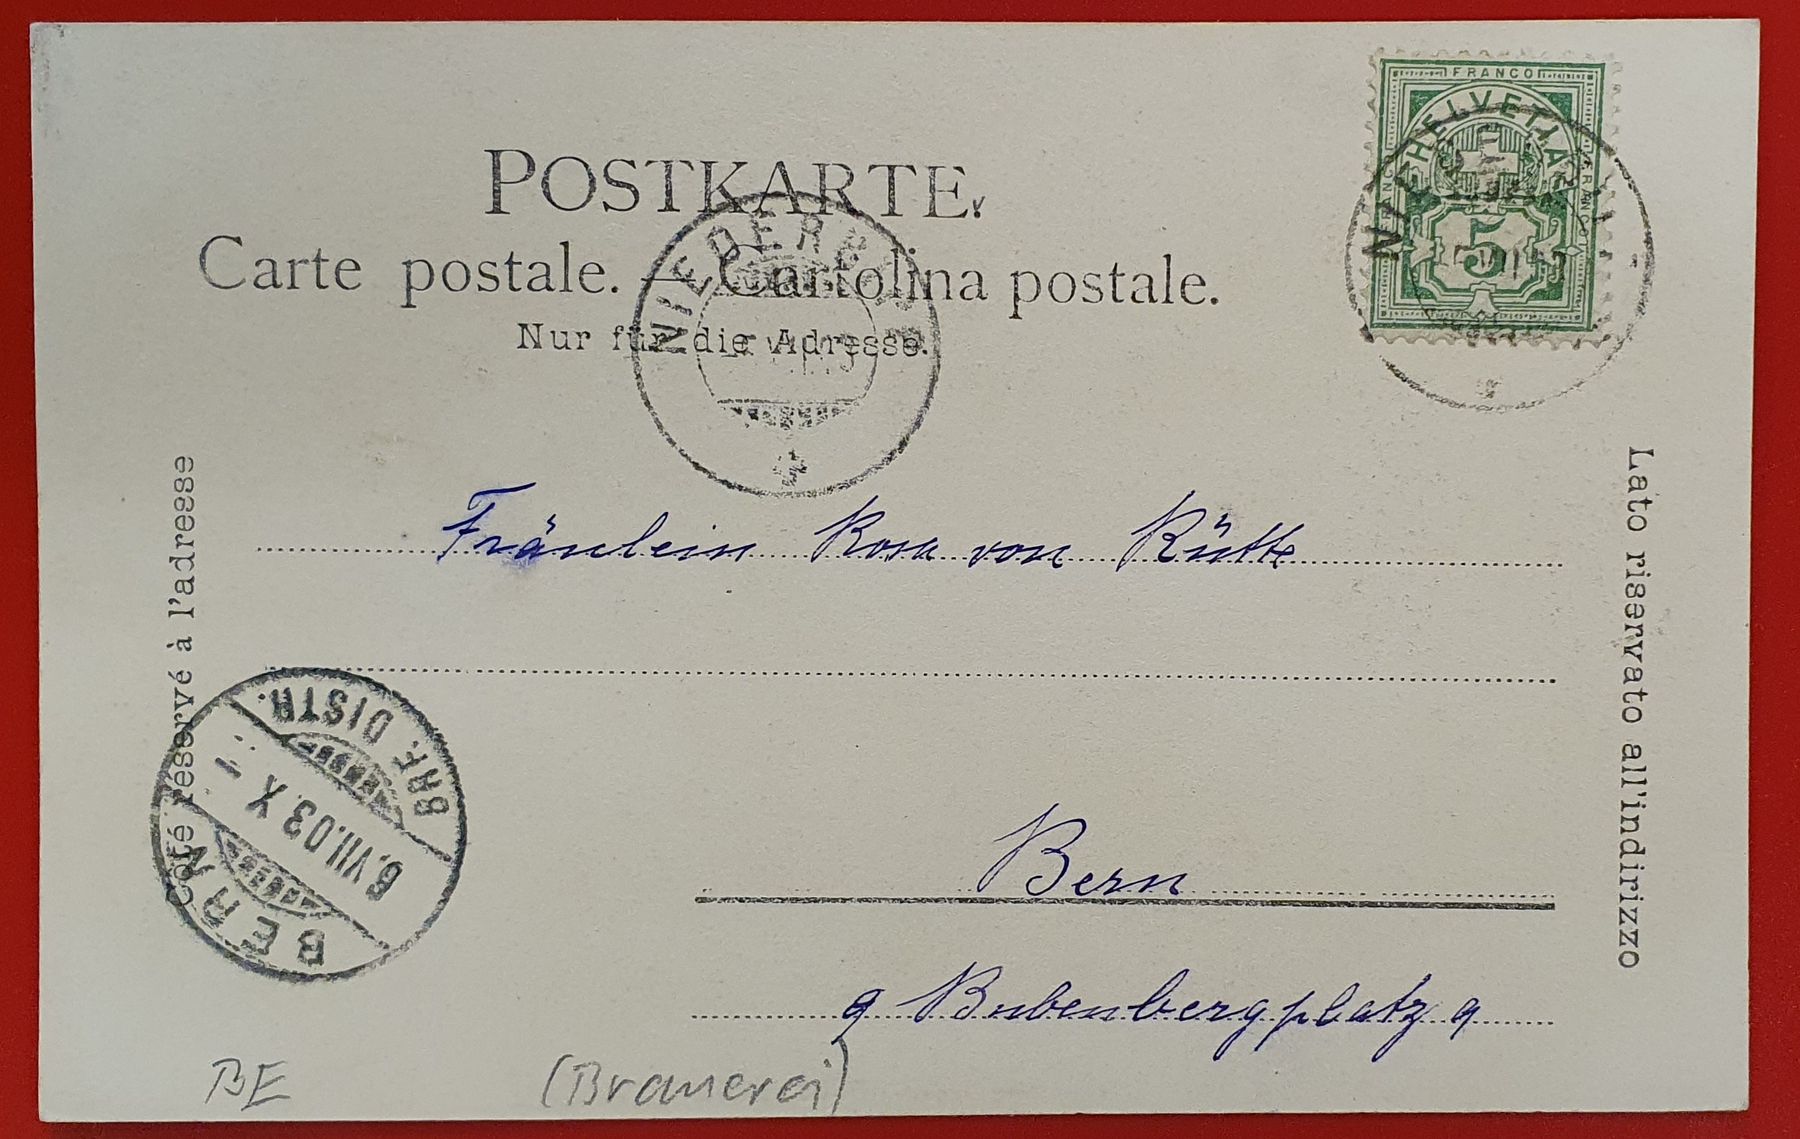 POSTKARTE.
Carte postale. — Cartolina postale.
Nur für die Adresse.
FRANCO
HELVETIA
FRANCO
FRANCO
5
Côté réservé à l'adresse
Lato riservato all'indirizzo
Fräulein Rosa von Rütte
Bern
9 Bubenbergplatz 9
BRF. DISTR.
6.VII.03.X
BERN
BE
(Brauerei)